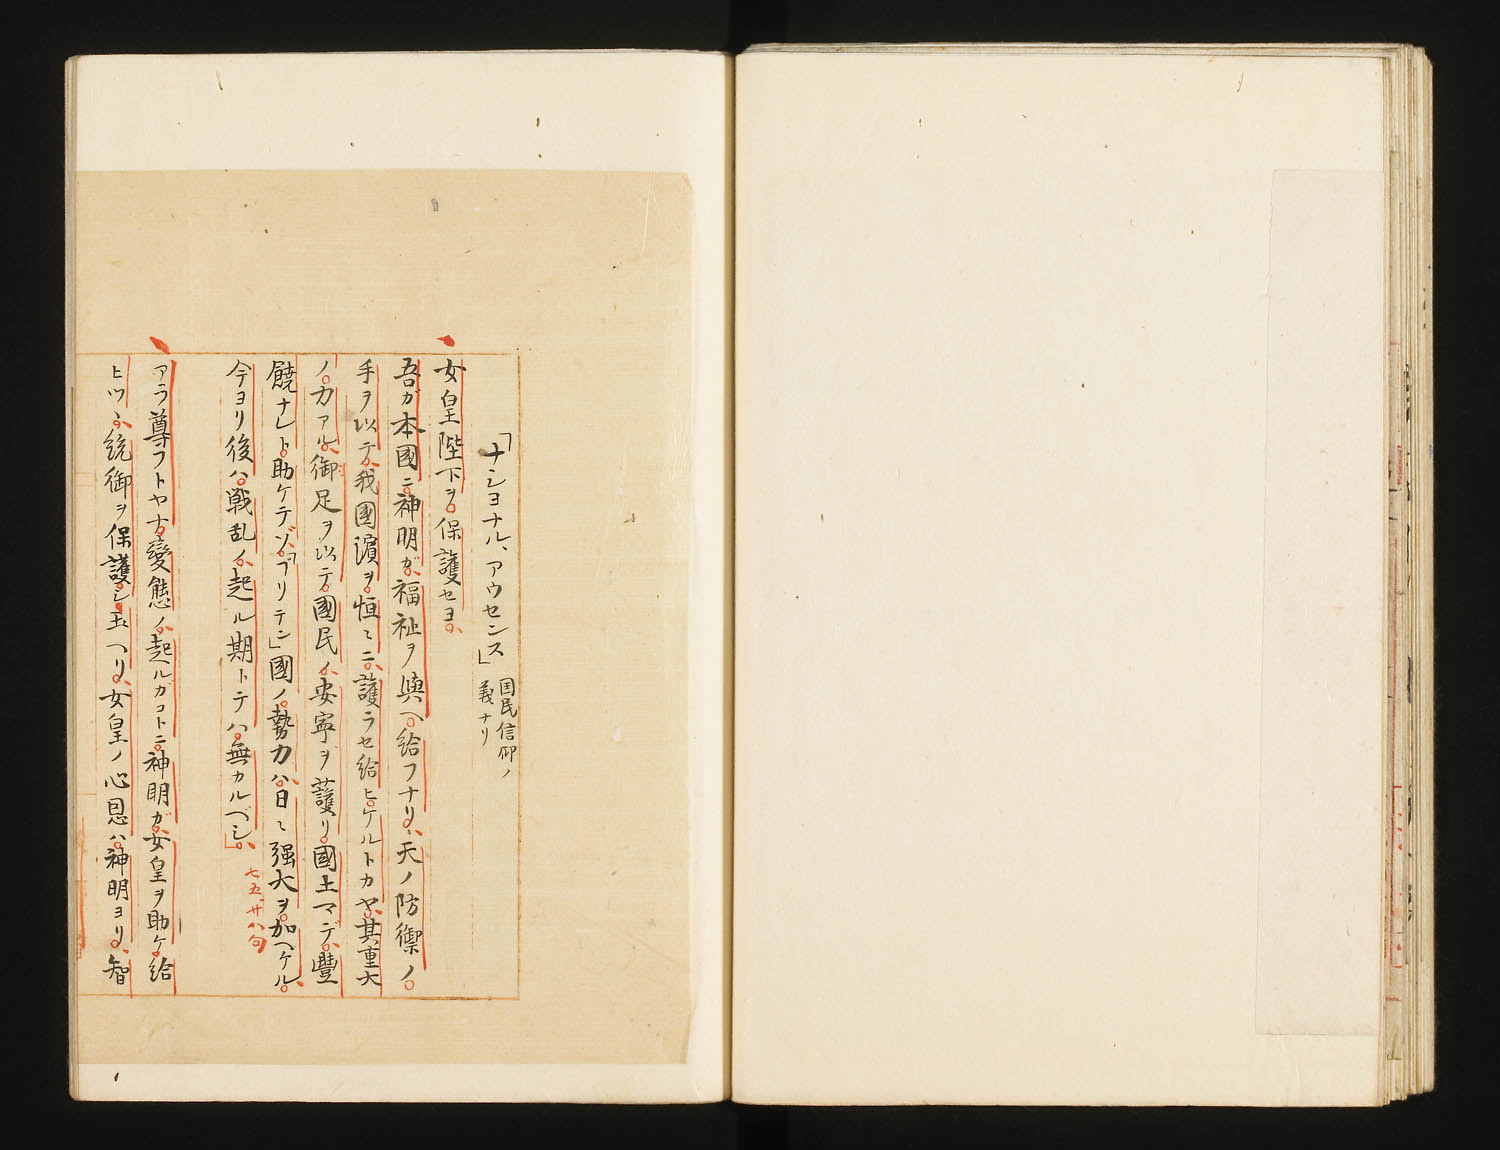 「ナシヨナル、アウセンス」国民信仰ノ
義ナリ
女皇陛下ヲ保護セヨ
吾ガ本國ニ神明ガ福祉ヲ與ヘ給フナリ、天ノ防禦ノ
手ヲ以テ我國濵ヲ恒ミニ護ラセ給ヒケルトカヤ其重大
ノ力アル御足ヲ以テ國民ノ安寧ヲ護リ國土マデ豊
饒ナレト助ケテゾ「ブリテン」國ノ勢力ハ日ミ强大ヲ加ヘケル
今ヨリ後ハ戦乱ノ起ル期トテハ無カルベシ」
七五、廿八句
アラ尊フトヤナ變態ノ起ルガコトニ神明ガ女皇ヲ助ケ給
ヒツヽ統御ヲ保護シ玉ヘリ女皇ノ心思ハ神明ヨリ智